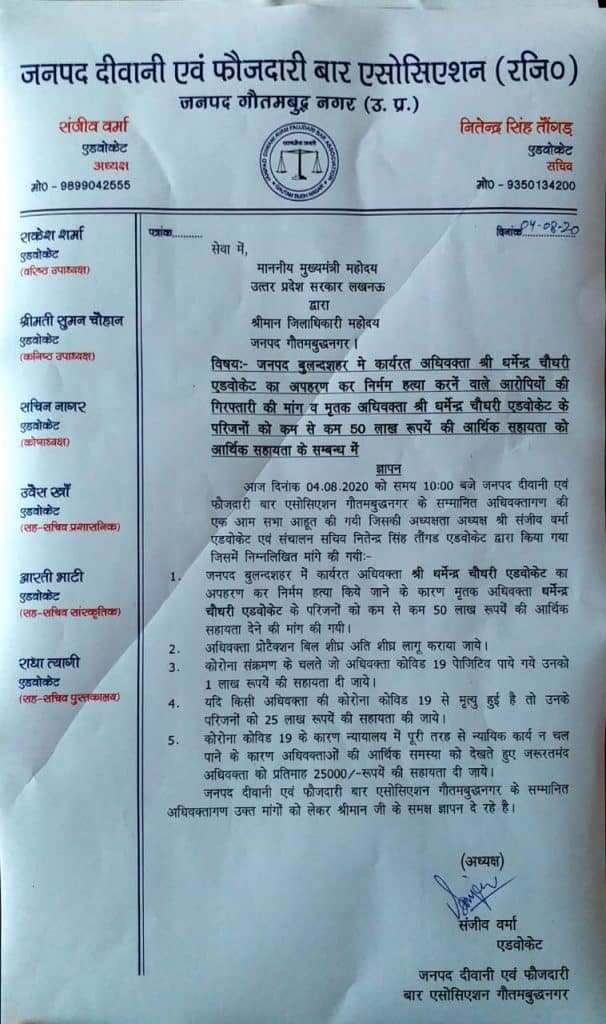 जनपद दीवानी एवं फौजदारी बार एसोसिएशन (रजि०)
जनपद गौतमबुद्ध नगर (उ. प्र.)
संजीव वर्मा
एडवोकेट
अध्यक्ष
मो0 - 9899042555
नितेन्द्र सिंह तौंगड़
एडवोकेट
सचिव
मो0 - 9350134200
राकेश शर्मा
एडवोकेट
(वरिष्ठ उपाध्यक्ष)
श्रीमती सुमन चौहान
एडवोकेट
(कनिष्ठ उपाध्यक्ष)
सचिन नागर
एडवोकेट
(कोषाध्यक्ष)
उवैस खाँ
एडवोकेट
(सह-सचिव प्रशासनिक)
आरती भाटी
एडवोकेट
(सह-सचिव सांस्कृतिक)
राधा त्यागी
एडवोकेट
(सह-सचिव पुस्तकालय)
पत्रांक...........
दिनांक 04-08-20
सेवा में,
माननीय मुख्यमंत्री महोदय
उत्तर प्रदेश सरकार लखनऊ
द्वारा
श्रीमान जिलाधिकारी महोदय
जनपद गौतमबुद्धनगर।
विषयः- जनपद बुलन्दशहर मे कार्यरत अधिवक्ता श्री धर्मेन्द्र चौधरी
एडवोकेट का अपहरण कर निर्मम हत्या करनें वाले आरोपियों की
गिरफ्तारी की मांग व मृतक अधिवक्ता श्री धर्मेन्द्र चौधरी एडवोकेट के
परिजनों को कम से कम 50 लाख रूपयें की आर्थिक सहायता को
आर्थिक सहायता के सम्बन्ध में
ज्ञापन
आज दिनांक 04.08.2020 को समय 10:00 बजे जनपद दीवानी एवं
फौजदारी बार एसोसिएशन गौतमबुद्धनगर के सम्मानित अधिवक्तागण की
एक आम सभा आहूत की गयी जिसकी अध्यक्षता अध्यक्ष श्री संजीव वर्मा
एडवोकेट एवं संचालन सचिव नितेन्द्र सिंह तौंगड एडवोकेट द्वारा किया गया
जिसमें निम्नलिखित मांगे की गयीः-
1. जनपद बुलन्दशहर में कार्यरत अधिवक्ता श्री धर्मेन्द्र चौधरी एडवोकेट का
अपहरण कर निर्मम हत्या किये जाने के कारण मृतक अधिवक्ता धर्मेन्द्र
चौधरी एडवोकेट के परिजनों को कम से कम 50 लाख रूपयें की आर्थिक
सहायता देने की मांग की गयी।
2. अधिवक्ता प्रोटैक्शन बिल शीघ्र अति शीघ्र लागू कराया जाये।
3. कोरोना संक्रमण के चलते जो अधिवक्ता कोविड 19 पोजिटिव पाये गये उनको
1 लाख रूपयें की सहायता दी जाये।
4. यदि किसी अधिवक्ता की कोरोना कोविड 19 से मृत्यु हुई है तो उनके
परिजनों को 25 लाख रूपयें की सहायता की जाये।
5. कोरोना कोविड 19 के कारण न्यायालय में पूरी तरह से न्यायिक कार्य न चल
पाने के कारण अधिवक्ताओं की आर्थिक समस्या को देखते हुए जरूरतमंद
अधिवक्ता को प्रतिमाह 25000/-रूपयें की सहायता दी जाये।
जनपद दीवानी एवं फौजदारी बार एसोसिएशन गौतमबुद्धनगर के सम्मानित
अधिवक्तागण उक्त मांगों को लेकर श्रीमान जी के समक्ष ज्ञापन दे रहे है।
(अध्यक्ष)
संजीव वर्मा
एडवोकेट
जनपद दीवानी एवं फौजदारी
बार एसोसिएशन गौतमबुद्धनगर